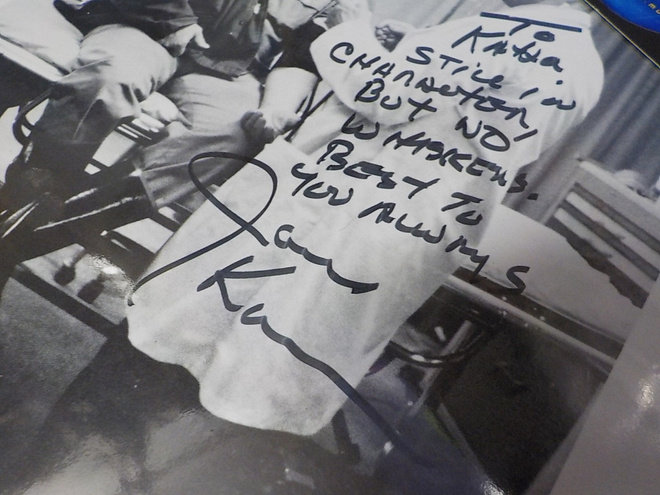 To
Katha.
STILL IN
CHARACTER,
BUT NO
WHISKERS.
BEST TO
YOU ALWAYS
James
Karen